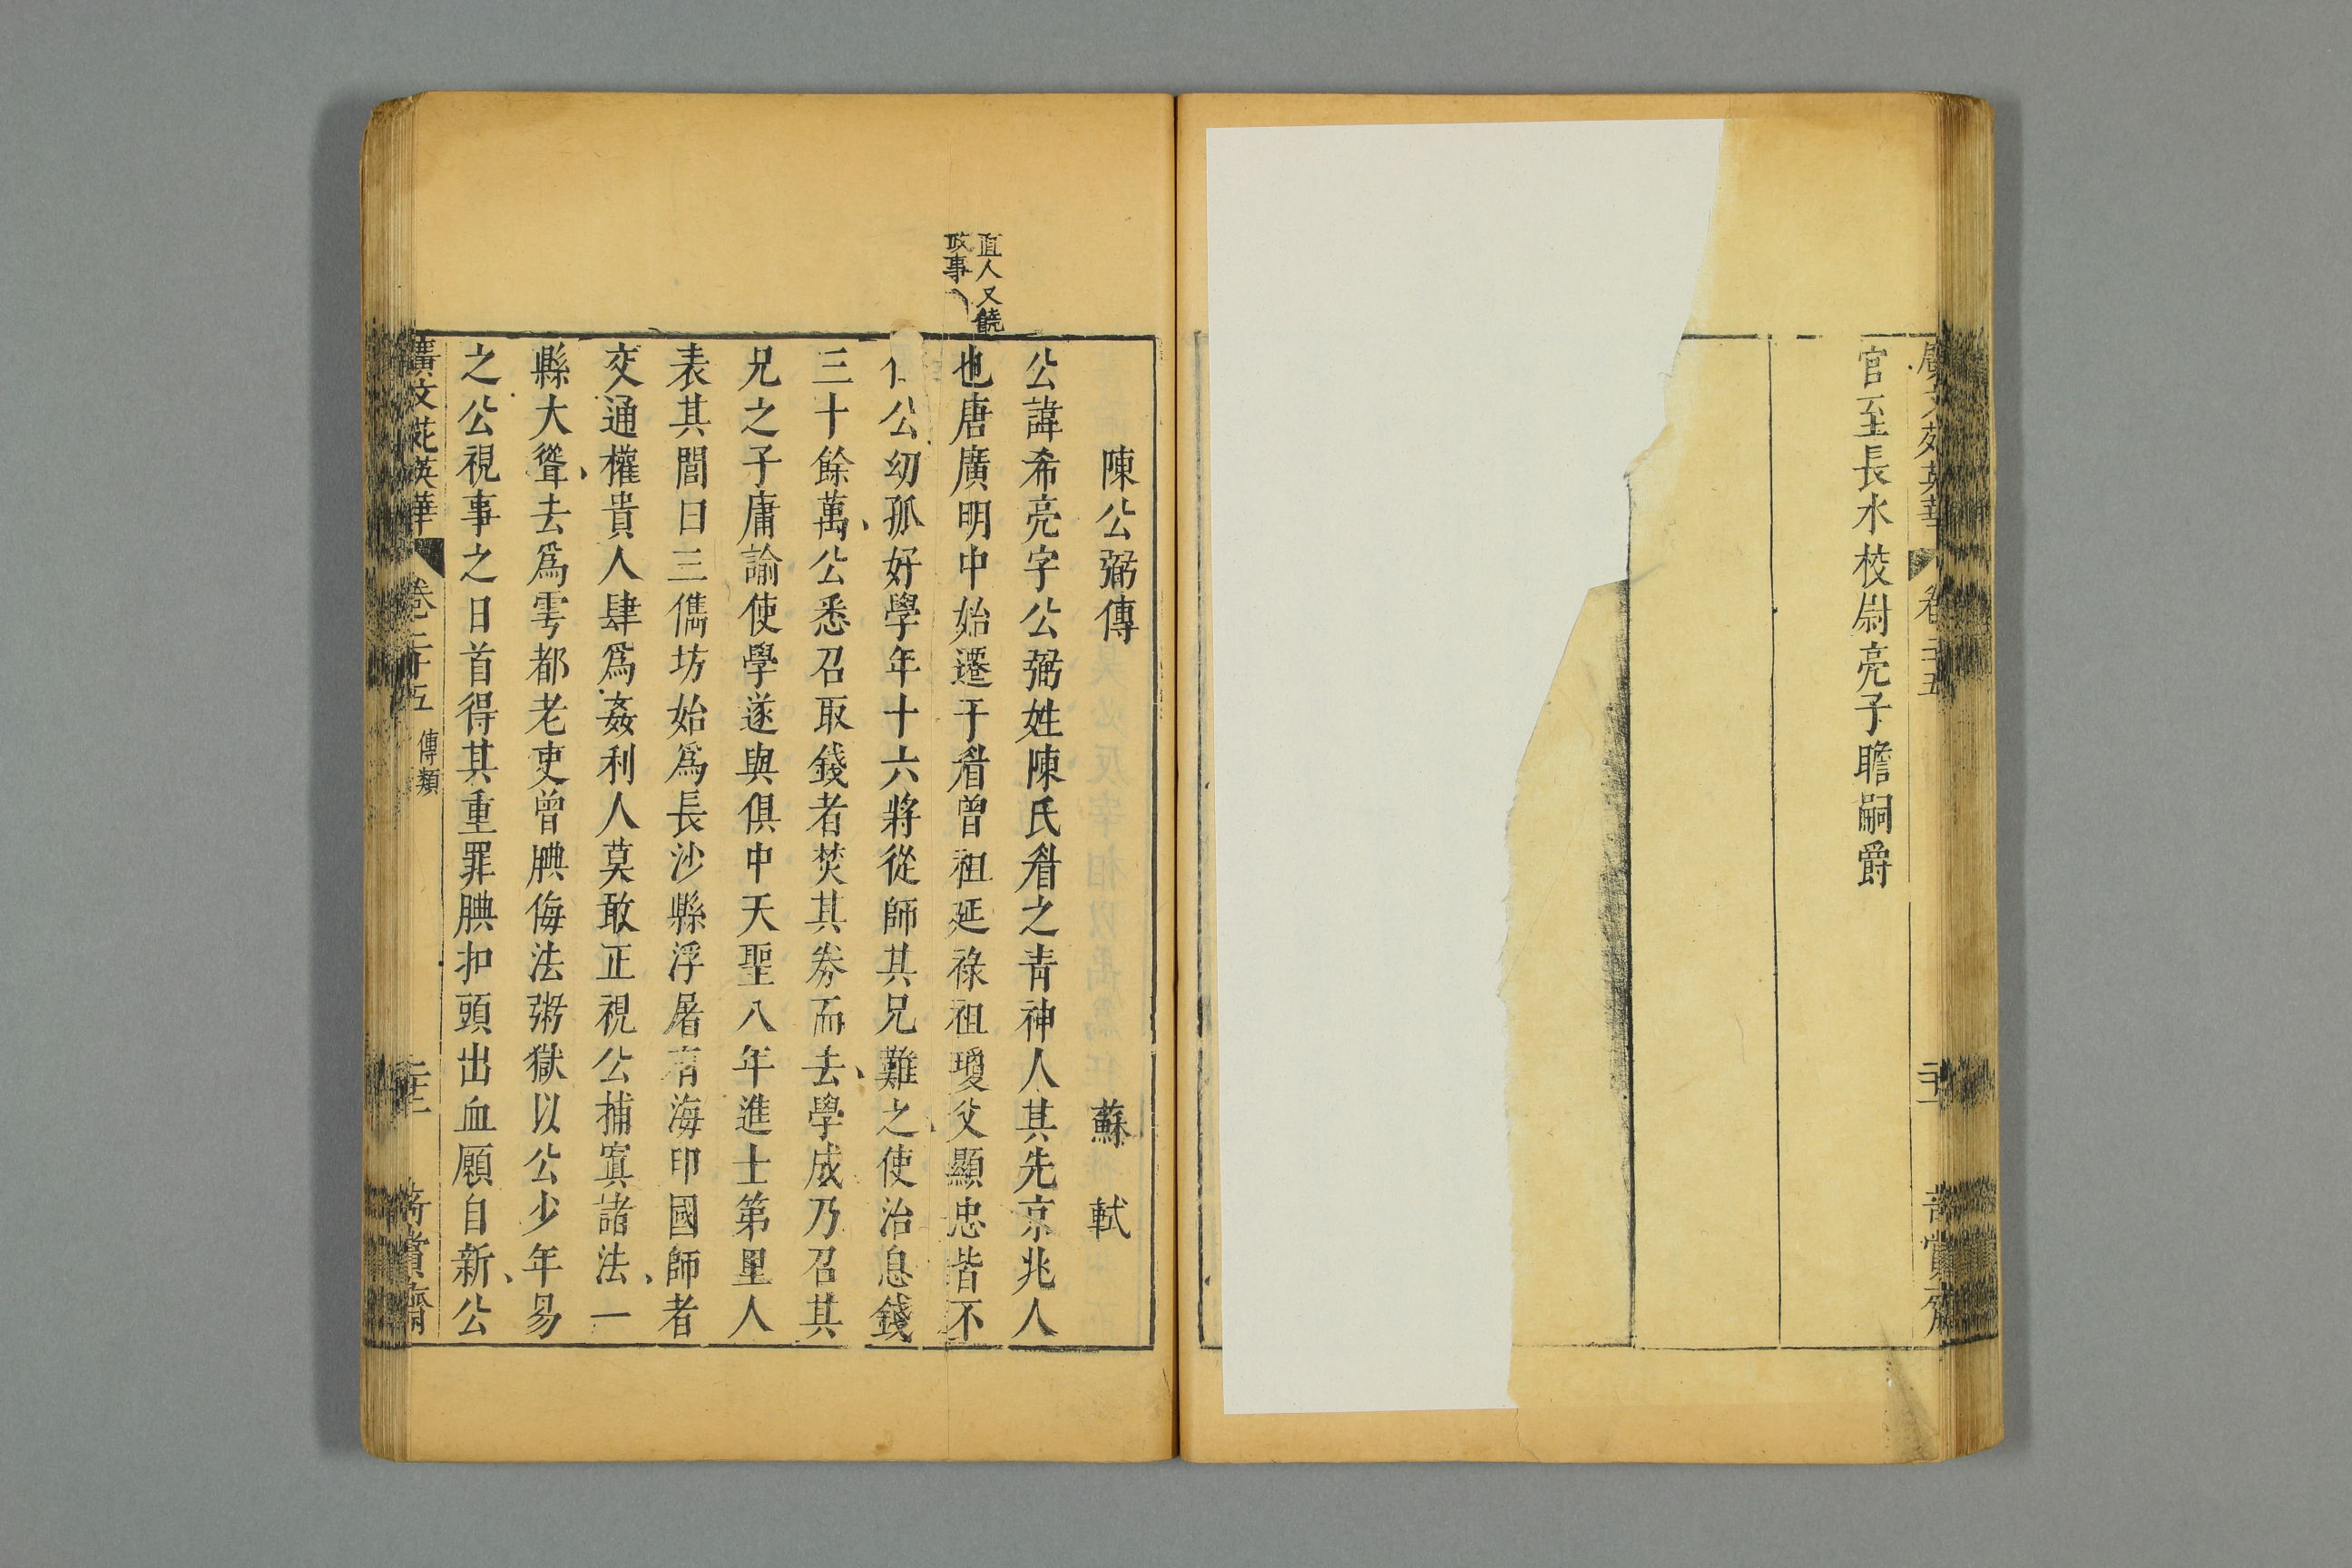 官至長水校尉亮子瞻嗣爵
陳公弼傳 蘇軾
公諱希亮字公弼姓陳氏眉之青神人其先京兆人
也唐廣明中始遷于眉曾祖延祿祖瓊父顯忠皆不
仕公幼孤好學年十六將從師其兄難之使治息錢
三十餘萬公悉召取錢者焚其券而去學成乃召其
兄之子庸諭使學遂與俱中天聖八年進士第里人
表其閭曰三儁坊始爲長沙縣浮屠有海印國師者
交通權貴人肆爲姦利人莫敢正視公捕寘諸法一
縣大聳去爲雩都老吏曾腆侮法粥獄以公少年易
之公視事之日首得其重罪腆扣頭出血願自新公
直人又饒
政事
廣文苑英華 卷二十五 傳類